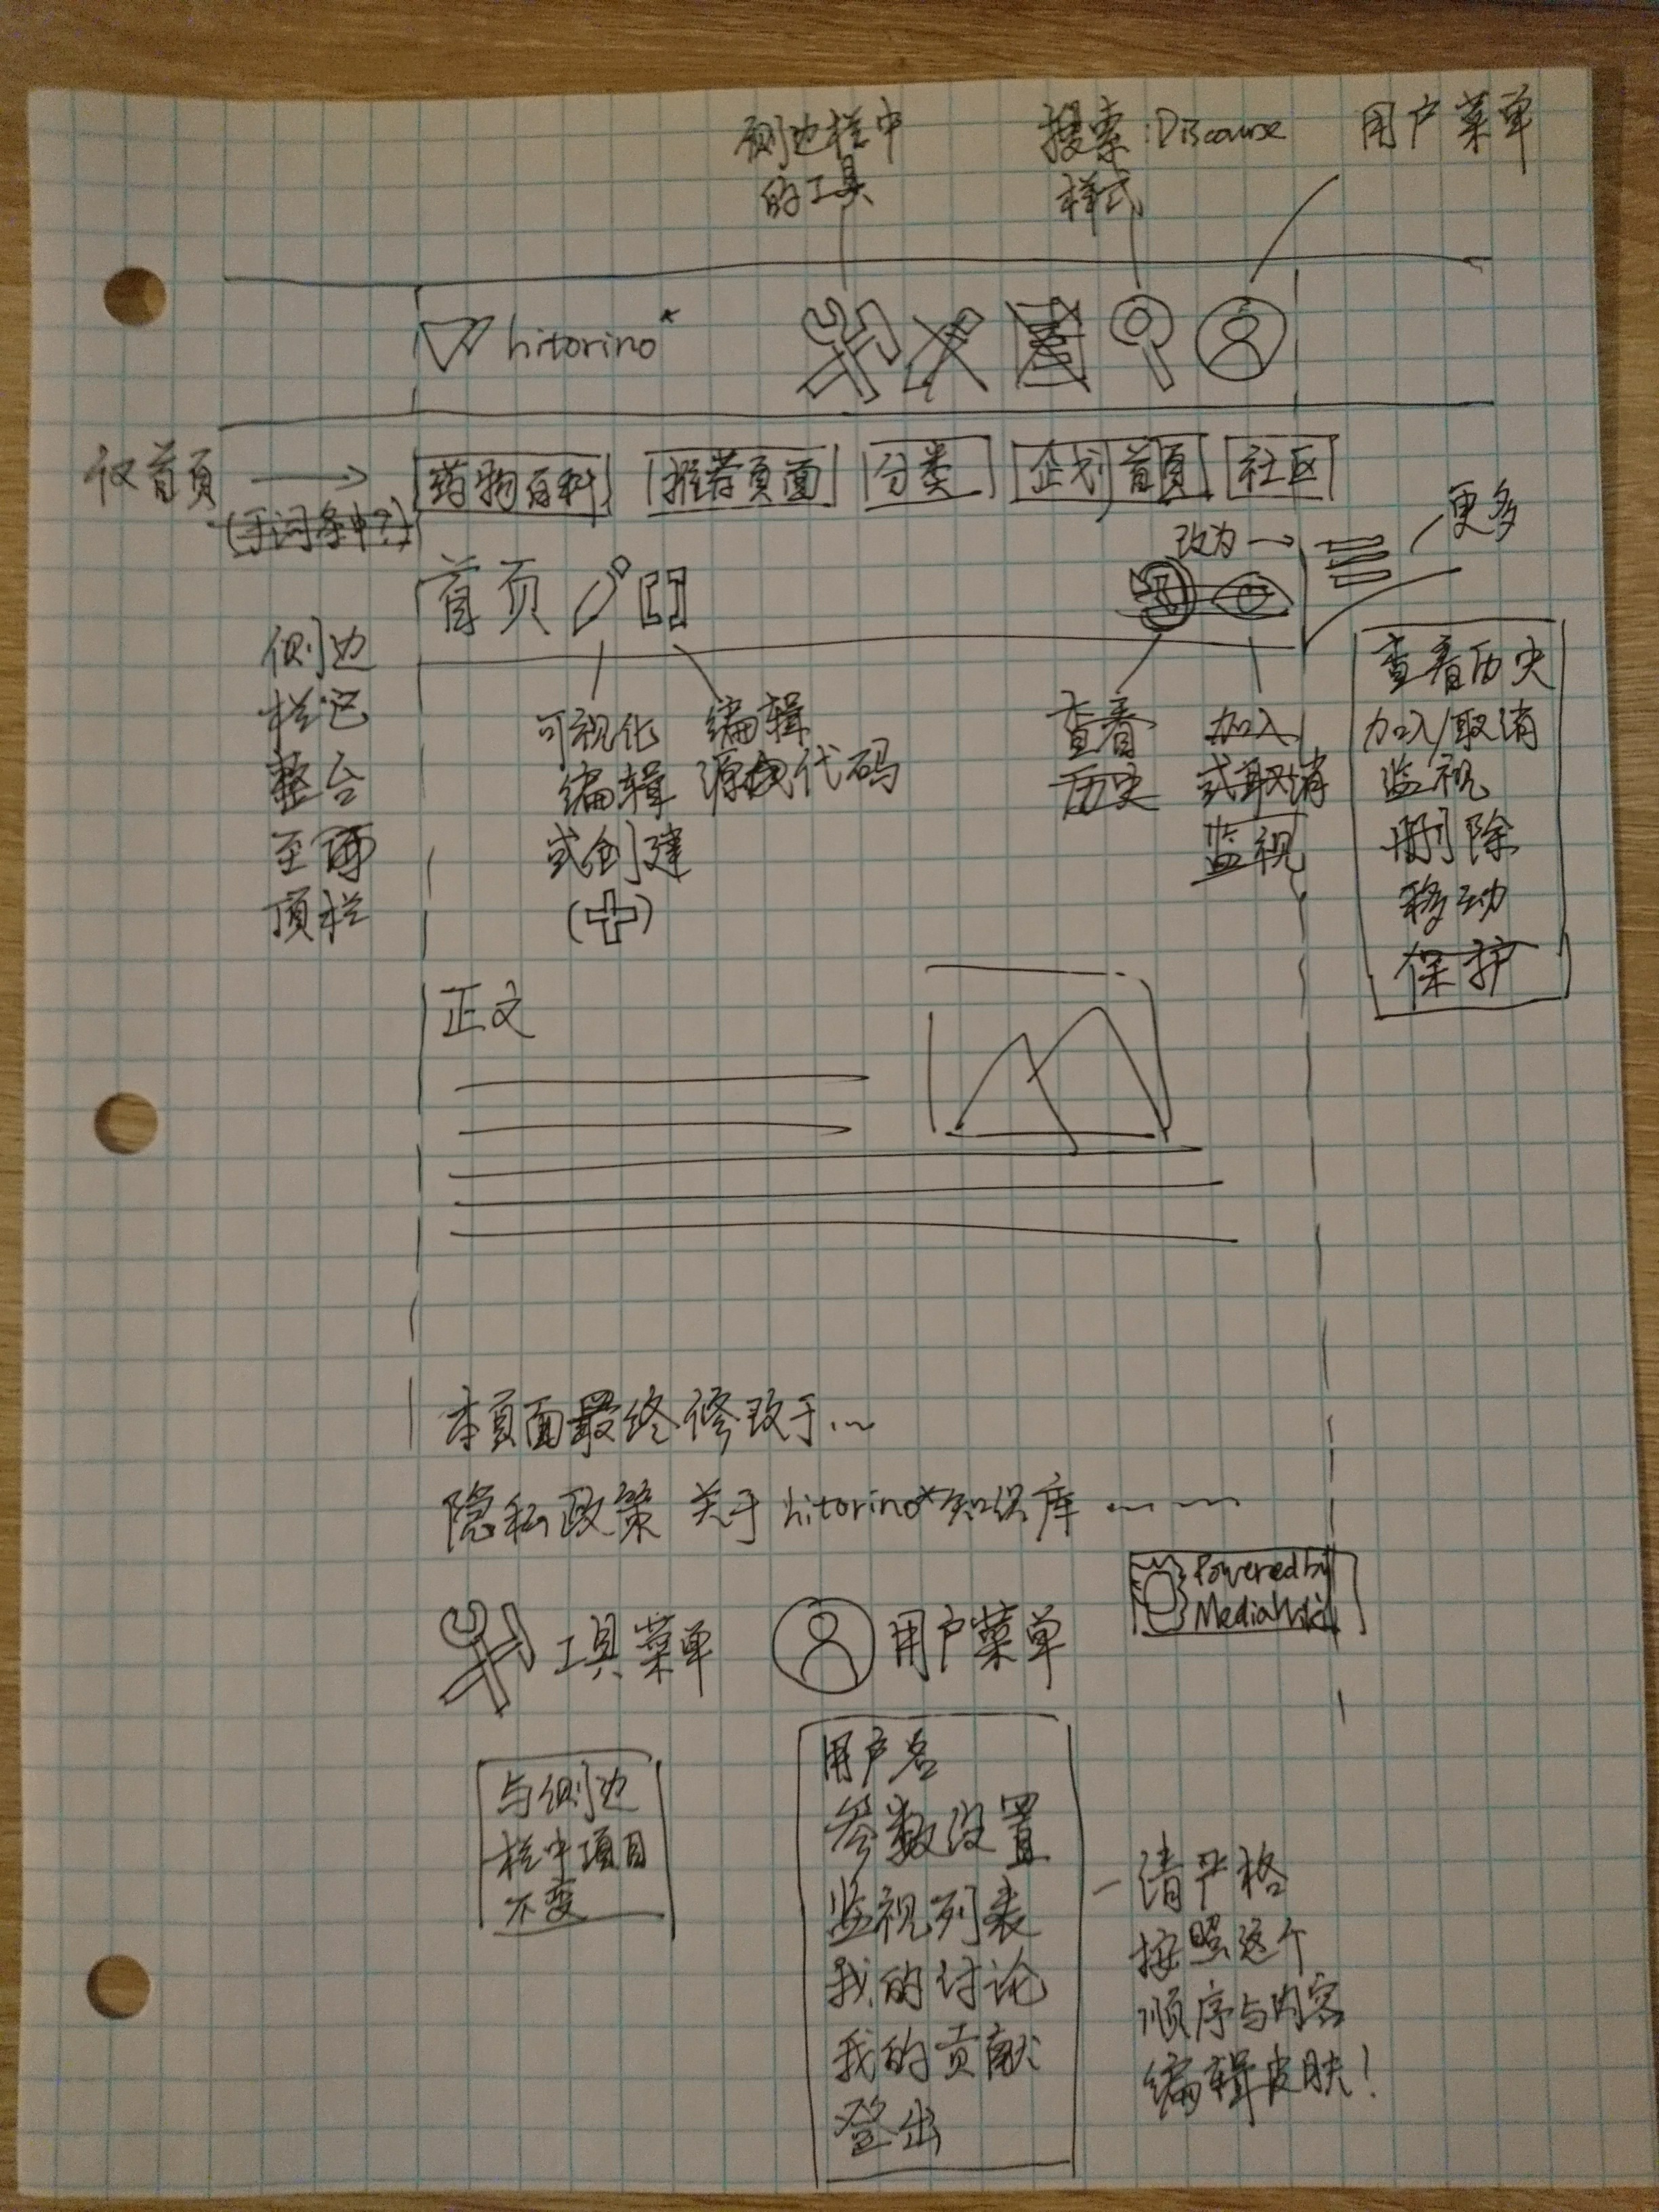 侧边栏中
的工具
搜索:Discourse
样式
用户菜单
hitorino*
仅首页
药物百科 推荐页面 分类 企划首页 社区
改为
更多
首页
侧边
栏
整合
至
顶栏
可视化
编辑
或创建
编辑
源代码
查看
历史
加入
或取消
监视
查看历史
加入/取消
监视
删除
移动
保护
正文
本页面最终修改于...
隐私政策 关于hitorino*知识库
Powered by
MediaWiki
工具菜单 用户菜单
与侧边
栏中项目
不变
用户名
参数设置
监视列表
我的讨论
我的贡献
登出
请严格
按照这个
顺序与内容
编辑皮肤!